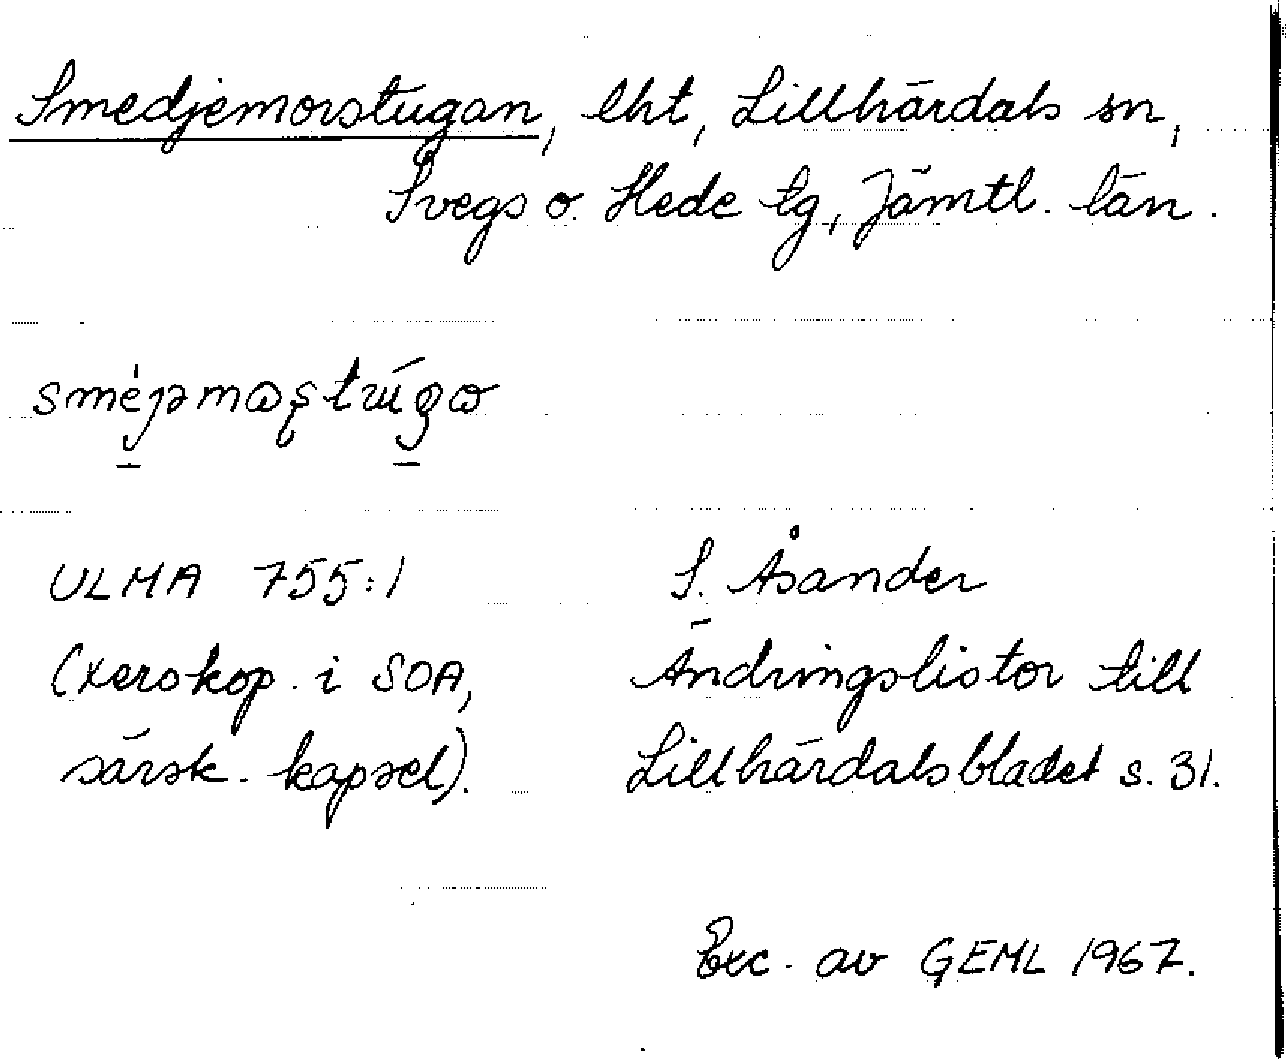 Smedjemorstugan, lht, Lillhärdals sn,
Svegs o. Hede tg, Jämtl. län.
ULMA 755:1
(xerokop. i SOA,
särsk. kapsel).
S. Åsander
Ändringslistor till
Lillhärdalsbladet s. 31.
Exc. av GEML 1967.